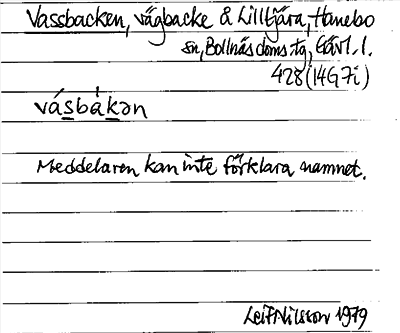 Vassbacken, vägbacke å Lilltjära, Hanebo
sn, Bollnäs doms. tg, Gävl. l.
428 (14G7i)
vásbákən
Meddelaren kan inte förklara namnet.
Leif Nilsson 1979